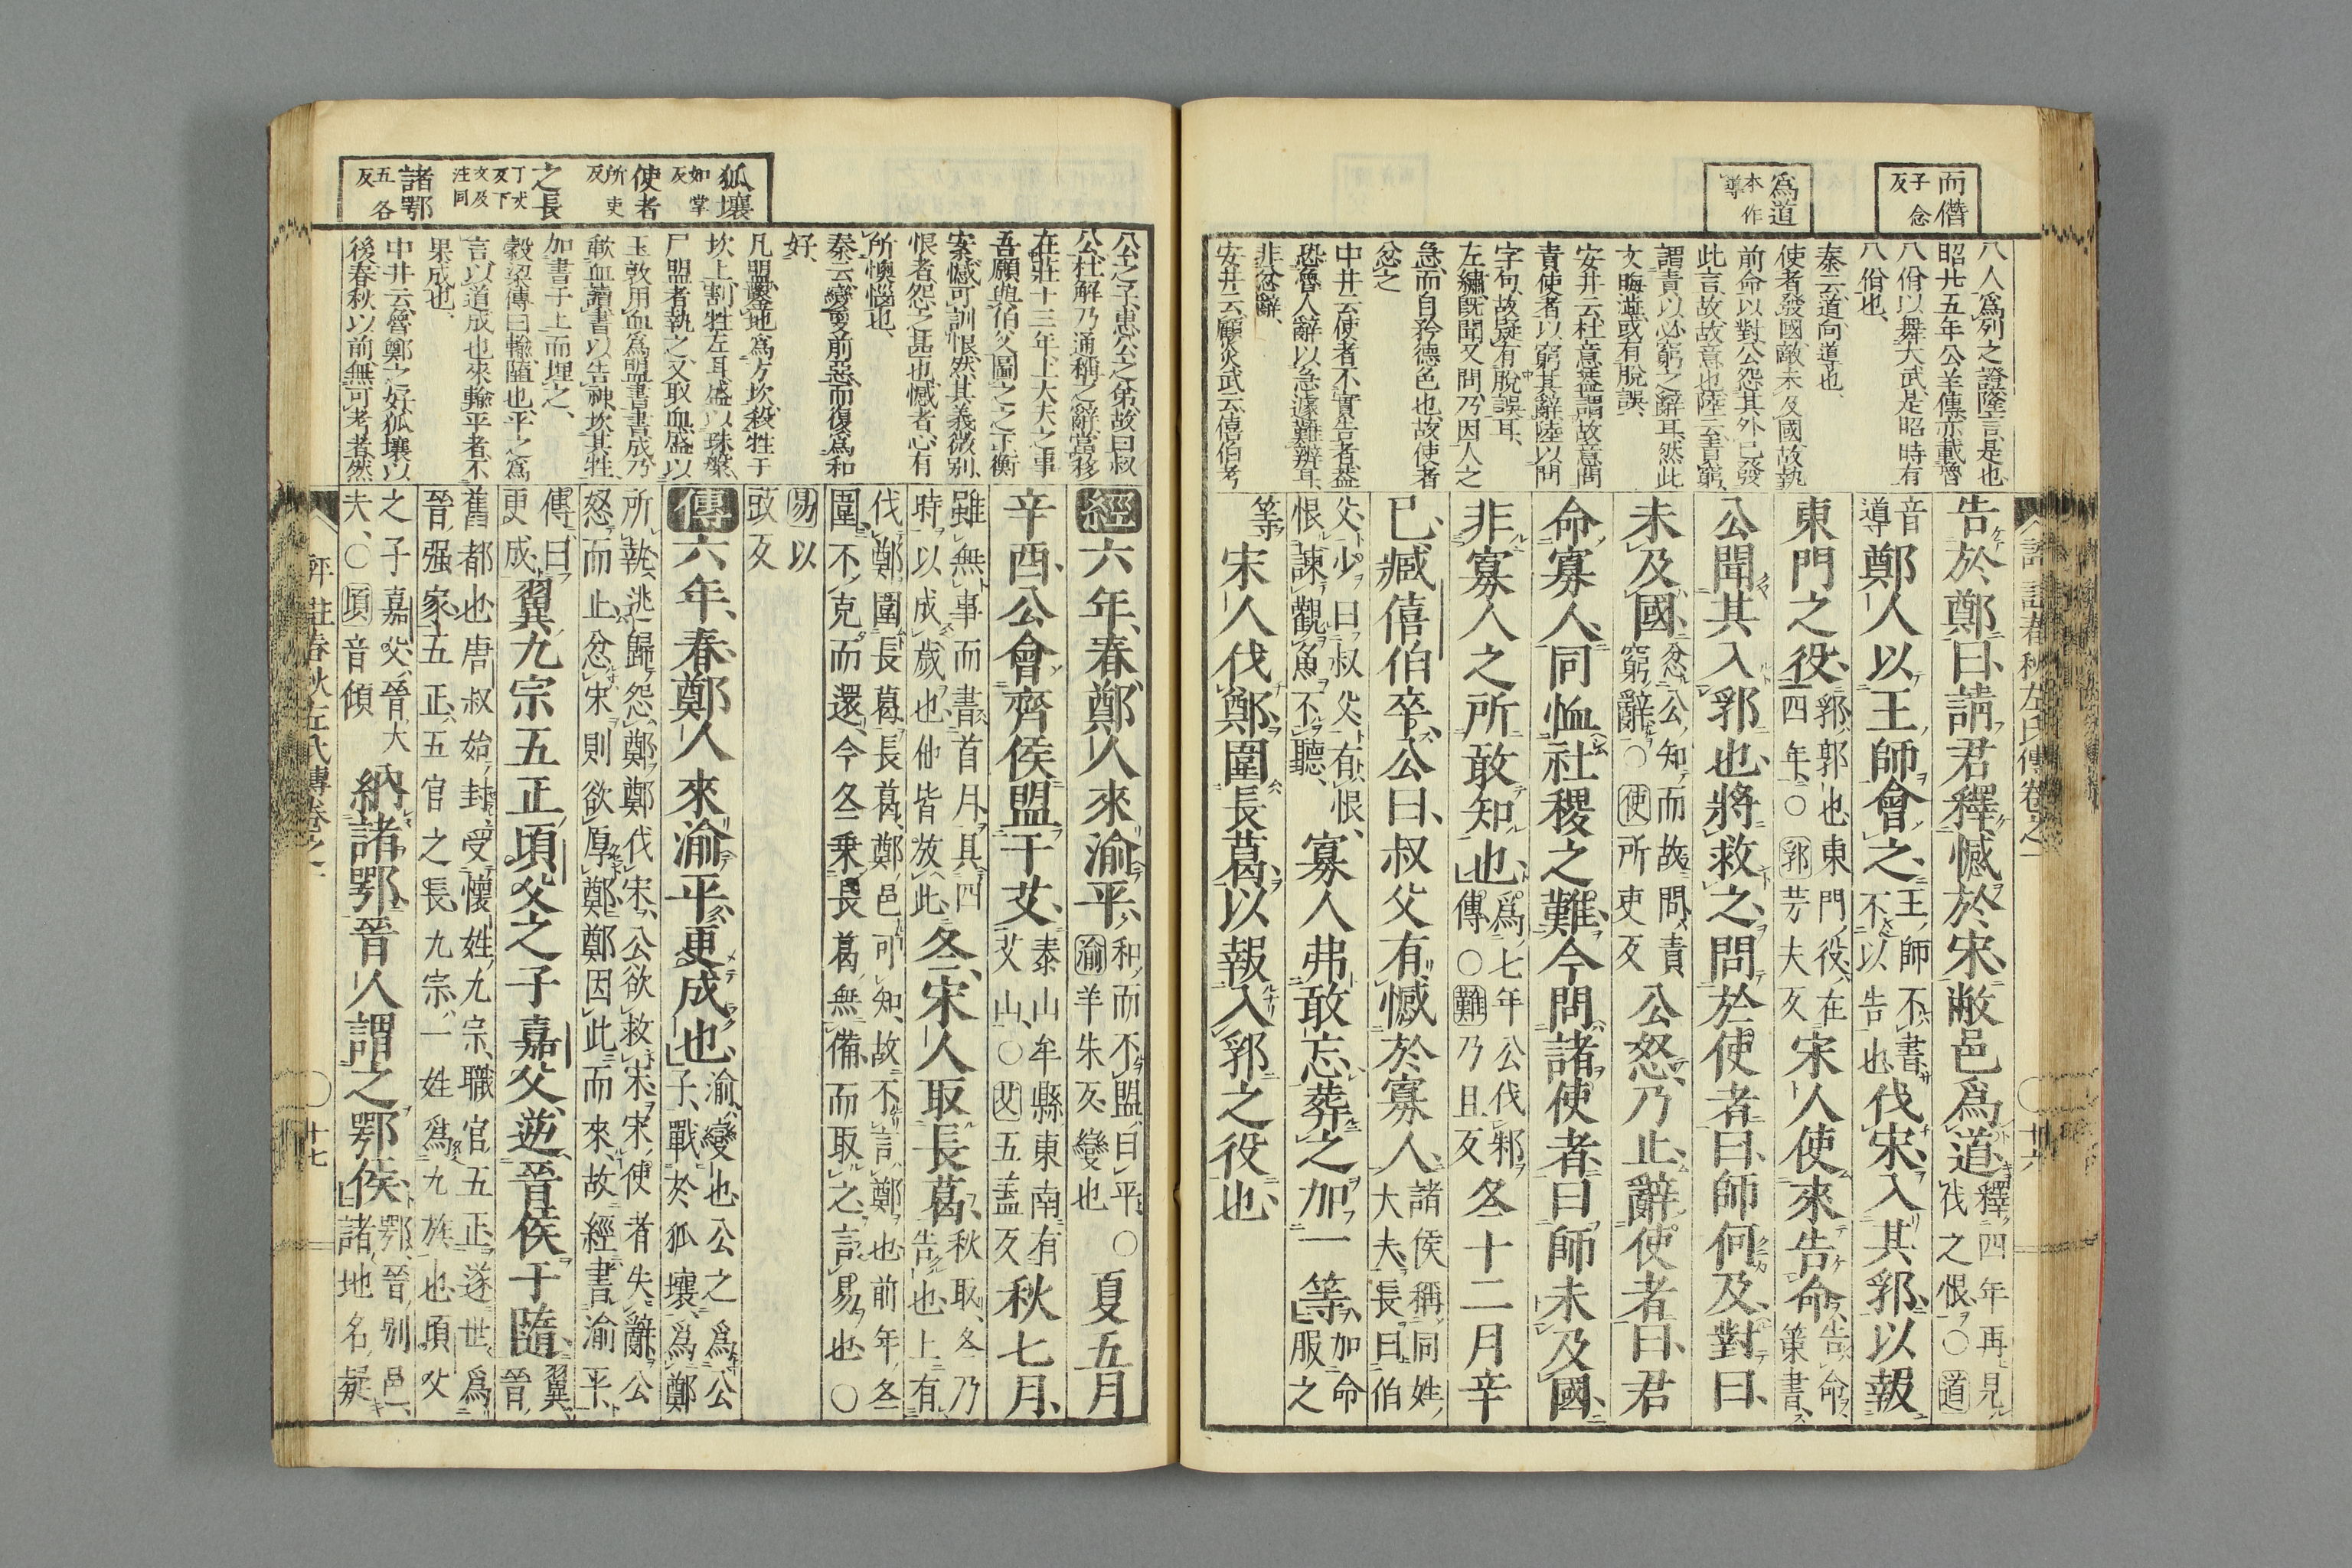 而僭
子念
反
爲道
本作
導
八人爲列之證隆言是也
昭廿五年公羊傳亦載魯
八佾以舞大武是昭時有
八佾也、
秦云道向導也、
使者發國敵未及國故執
前命以對公怨其外已發
此言故故意也陸云責窮
謂責以必窮之辭耳然此
文晦澁或有脫誤、
安井云杜意蓋謂故意問
責使者以窮其辭陸以問
字句故疑有脫誤耳、
左繡既聞又問乃因人之
急而自矜德色也故使者
忿之
中井云使者不實告者蓋
恐魯人辭以急遽難辨耳、
非忿辭、
安井云顧炎武云僖伯考
告於鄭曰請君釋憾於宋敝邑爲道
釋四年再見
伐之恨〇道
音
導
鄭人以王師會之
王師不書
不以告也
伐宋入其郛以報
東門之役
郛郭也東門役在
四年〇郛芳夫反
宋人使來告命
告命
策書
公聞其入郛也將救之問於使者曰師何及對曰
未及國
忿公知而故問責
窮辭〇使所吏反
公怒乃止辭使者曰君
命寡人同恤社稷之難今問諸使者曰師未及國
非寡人之所敢知也
爲七年公伐邾
傳〇難乃且反
冬十二月辛
巳臧僖伯卒公曰叔父有憾於寡人
諸侯稱同姓
大夫長曰伯
父少曰叔父有恨
恨諫觀魚不聽
寡人弗敢忘葬之加一等
加命
服之
等
宋人伐鄭圍長葛以報入郛之役也
狐壤
如掌
反
使者
所吏
反
之長
丁丈
反下
文及
注同
諸鄂
五各
反
公之子惠公之弟故曰叔
公杜解乃通稱之辭當移
在莊十三年上大夫之事
吾願與伯父圖之之下衡
案憾可訓恨然其義微別
恨者怨之甚也憾者心有
所懊惱也、
秦云變更前惡而復爲和
好、
凡盟鑿地爲方坎殺牲于
坎上割牲左耳盛以珠槃
尸盟者執之又取血盛以
玉敦用血爲盟書書成乃
歃血讀書以告神坎其牲
加書于上而埋之、
穀梁傳曰輸墮也平之爲
言以道成也來輸平者不
果成也、
中井云魯鄭之好狐壤以
後春秋以前無可考者然
經六年春鄭人來渝平
和而不盟曰平〇
渝羊朱反變也
夏五月
辛酉公會齊侯盟于艾
泰山牟縣東南有
艾山〇艾五蓋反
秋七月
雖無事而書首月具四
時以成歲也他皆放此
冬宋人取長葛
秋取冬乃
告也上有
伐鄭圍長葛長葛鄭邑可知故不言鄭也前年冬
圍不克而還今冬乘長葛無備而取之言易也〇
易以
豉反
傳六年春鄭人來渝平更成也
渝變也公之爲公
子戰於狐壤爲鄭
所執逃歸怨鄭鄭伐宋公欲救宋宋使者失辭公
怒而止忿宋則欲厚鄭鄭因此而來故經書渝平
傳曰
更成
翼九宗五正頃父之子嘉父逆晉侯于隨
翼
晉
舊都也唐叔始封受懷姓九宗職官五正遂世爲
晉强家五正五官之長九宗一姓爲九族也頃父
之子嘉父晉大
夫〇頃音傾
納諸鄂晉人謂之鄂侯
鄂晉別邑
諸地名疑
評註春秋左氏傳卷之一
十七